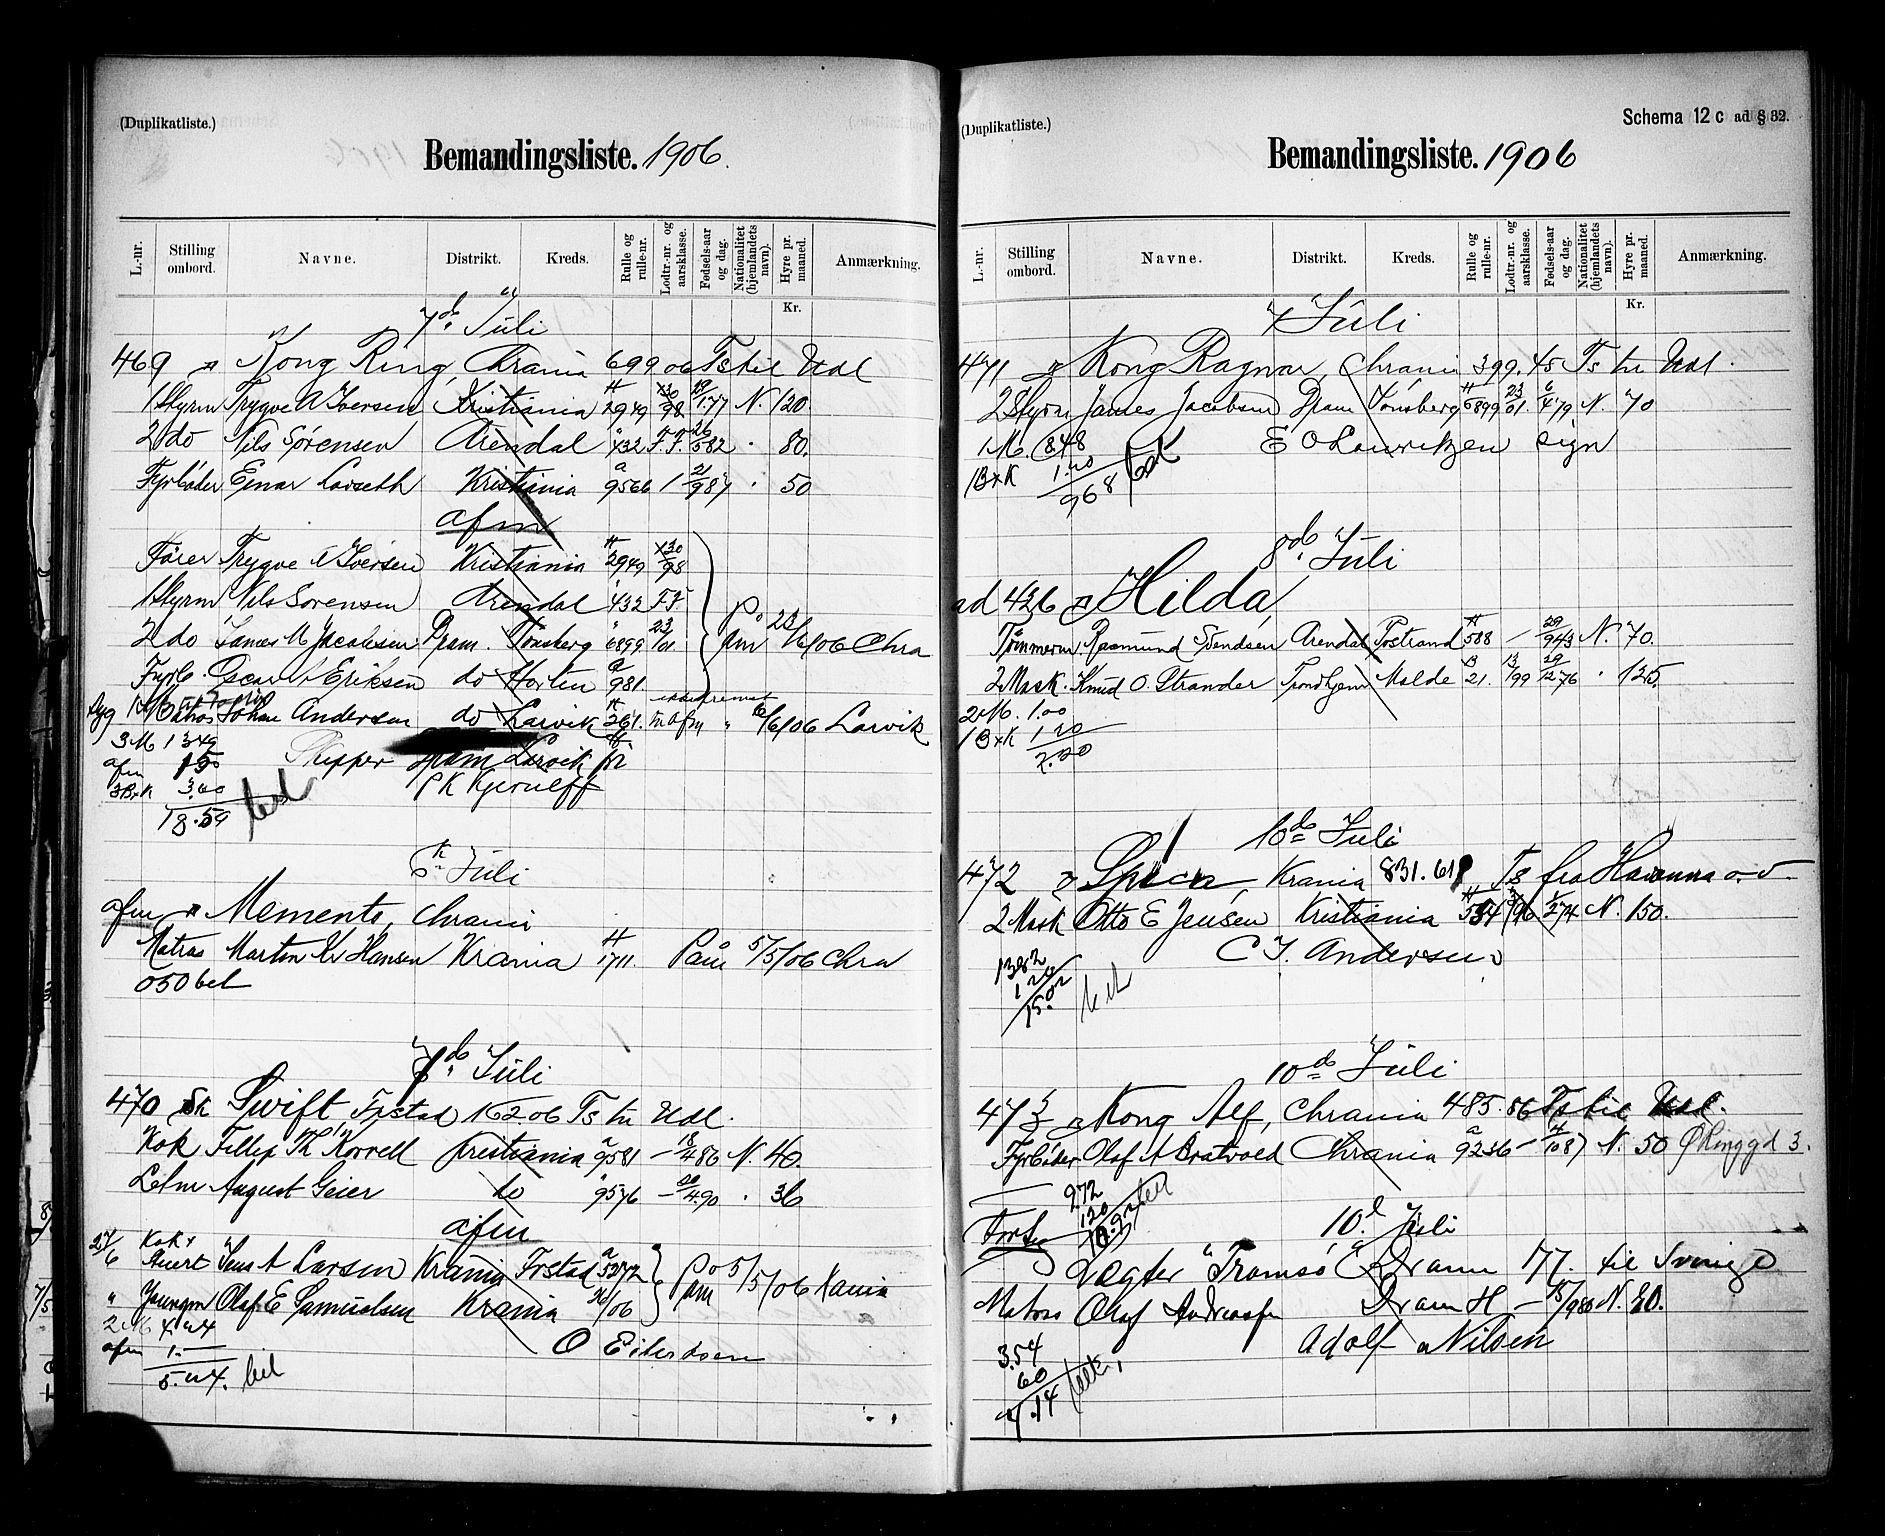 (Duplikatliste.)
Bemandingsliste. 1906.
L.-nr. Stilling ombord. Navne. Distrikt. Kreds. Rulle og rulle-nr. Lodtr.-nr. og aarsklasse. Fødsels-aar og dag. Nationalitet (hjemlandets navn). Hyre pr. maaned. Anmærkning.
Kr.
7de Juli
469 Kong Ring, Chrania 699 06 Ts til Udl
1 Styrm Trygve N Iversen Kristiania 2949 130/98 19/1 77 N. 120.
2 do Nils Sørensen Arendal " 432 F.F. 26/5 82 " 80.
Fyrbøder Ejnar Larseth Kristiania a 9566 1 21/9 87 " 50
afm
Fører Trygve N Iversen Kristiania 2949 130/98
1 Styrm Nils Sørensen Arendal " 432 F.F
2 do James M Jacobsen Dram. Tønsberg " 6899 23/01 Po pm 23/6/06 Chra
Fyrb. Oscar A Eriksen do Horten a 981.
Matros Johan Andersen do Larvik 261. afm " 16/6/06 Larvik
3 M 13.49
afm 1.50
3B+K 3.60
18.59 bet
Skipper Dram Larvik
P K Kjerulff
6te Juli
afm Memento, Chrania
Matros Martin Kr Hansen Krania 1711. Påm 5/5/06 Chra
050 bet
7de Juli
470 Sk Swift Frstad 162.06 Ts til Udl.
Kok Fillip Th Korrell Kristiania a 9581 – 18/4 86 N. 40.
Letm August Geier do " 9576 – 4.90 " 36
afm
27/6 Kok+ Stuert Jens A Larsen Krania Frstad a 5372 Po pm 5/5/06 Kania
" Jungm Olaf E Samuelsen Krania 26/06
2 M 4.44
afm 1.–
5.44. bet
O Eilertsen
(Duplikatliste.) Schema 12 c ad § 32.
Bemandingsliste. 1906
L.-nr. Stilling ombord. Navne. Distrikt. Kreds. Rulle og rulle-nr. Lodtr.-nr. og aarsklasse. Fødsels-aar og dag. Nationalitet (hjemlandets navn). Hyre pr. maaned. Anmærkning.
Kr.
7 Juli
471 Kong Ragnar, Chrania 399.45 Ts til Udl.
2 Styrm James Jacobsen Dram Tønsberg 6899 23/01. 6/4 79 N. 70
1 M. 8.48 E O Lauritzen sign
1B+K 1.20
9.68 bet
8de Juli
ad 426 Hilda,
Tømmerm Rasmund Svendsen Arendal Tostrand 588 – 29/9 43 N. 70.
2 Mask. Knud O. Strander Trondhjem Molde 21. 13/99 29/12 76 " 125.
2 M. 1.00
1B+K 1.20
2.20
10de Juli
472 Spica, Krania 831.61 Ts fra Havanna o.v
2 Mask Otto E Jensen Kristiania 534 /96 1/2 74 N. 150.
C J. Andersen
13.82
1.20
15.02 bet
10de Juli
473 Kong Alf, Chrania 485.86 Ts til Udl.
Fyrbøder Olaf A Bratvold Chrania a 9236 – 4/10 87 N. 50
9.72
1.20
10.92 bet
10d Juli
Lægter "Tromsø" Dram 177. til Sverige
Matros Olaf Andreassen Dram H – 15/9 80 N. 60.
Adolf Nilsen
3.54
60
4.14